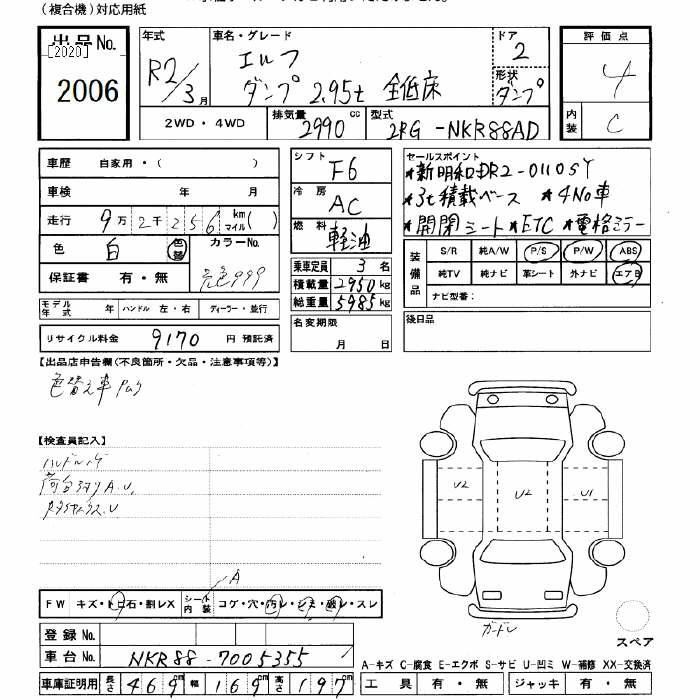 (複合機)対応用紙
出品No.
[2020]
2006
年式
R2/3月
車名・グレード
エルフ
ダンプ 2.95t 全低床
ドア
2
形状
ダンプ
評価点
4
内装
C
2WD・4WD
排気量
2990 cc
型式
2RG-NKR88AD
車歴 自家用・( )
車検 年 月
走行 9万2千256 km マイル( )
色 白 色替
カラーNo.
元色999
保証書 有・無
モデル年式 年 ハンドル 左・右 ディーラー・並行
リサイクル料金 9170 円 預託済
シフト F6
冷房 AC
燃料 軽油
乗車定員 3 名
積載量 2950 kg
総重量 5985 kg
名変期限
月 日
セールスポイント
★新明和DR2-0110SY
★3t積載ベース ★4No車
★開閉シート★ETC ★電格ミラー
装備品
S/R 純A/W P/S P/W ABS
純TV 純ナビ 革シート 外ナビ エアB
ナビ型番:
後日品
【出品店申告欄(不良箇所・欠品・注意事項等)】
色替え車
【検査員記入】
ハンドルハゲ
荷台 A.U.
U2 U2 U1
A
FW キズ・トビ石・割レX シート内装 コゲ・穴・汚レ・シミ・破レ・スレ
登録No.
車台No. NKR88-7005355
車庫証明用 長さ 469 幅 169 高さ 197
スペア
A-キズ C-腐食 E-エクボ S-サビ U-凹ミ W-補修 XX-交換済
工具 有・無 ジャッキ 有・無